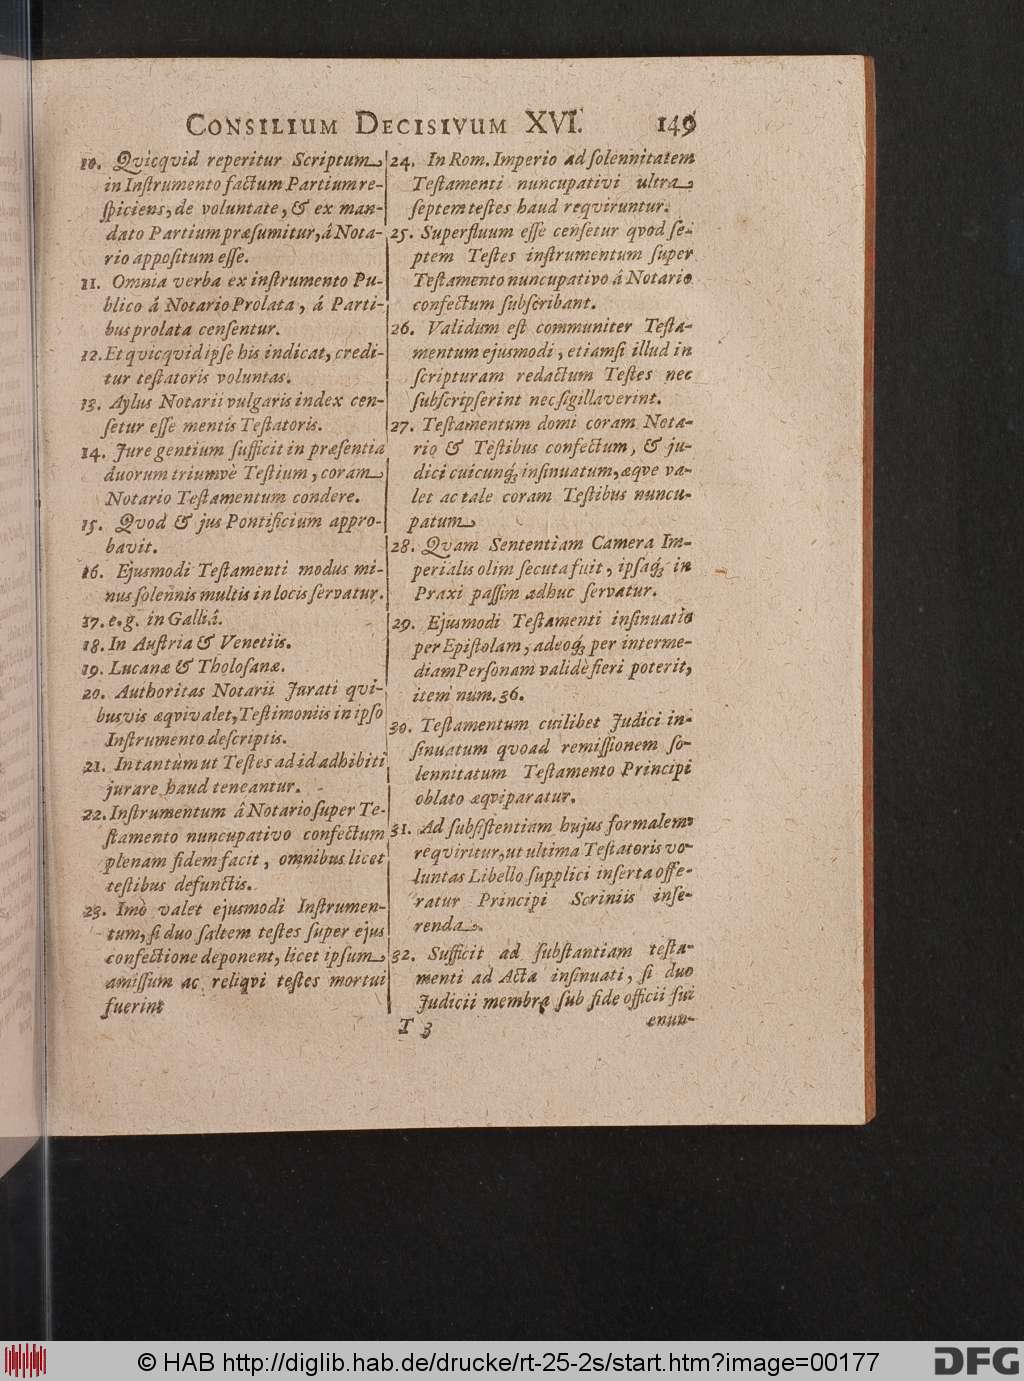 CONSILIUM DECISIVUM XVI. 149
10. Qvicqvid reperitur Scriptum
in Inſtrumento factum Partium re-
ſpiciens, de voluntate, & ex man-
dato Partium præſumitur, á Nota-
rio appoſitum eſſe.
11. Omnia verba ex inſtrumento Pu-
blico á Notario Prolata, á Parti-
bus prolata cenſentur.
12. Et qvicqvid ipſe his indicat, credi-
tur teſtatoris voluntas.
13. Aylus Notarii vulgaris index cen-
ſetur eſſe mentis Teſtatoris.
14. Jure gentium ſufficit in præſentia
duorum triumvè Teſtium, coram
Notario Teſtamentum condere.
15. Qvod & jus Pontificium appro-
bavit.
16. Ejusmodi Teſtamenti modus mi-
nus ſolennis multis in locis ſervatur.
17. e.g. in Galliâ.
18. In Auſtria & Venetiis.
19. Lucanæ & Tholoſanæ.
20. Authoritas Notarii Jurati qvi-
busvis æqvivalet, Teſtimoniis in ipſo
Inſtrumento deſcriptis.
21. In tantùm ut Teſtes ad id adhibiti
jurare haud teneantur.
22. Inſtrumentum â Notario ſuper Te-
ſtamento nuncupativo confectum
plenam fidem facit, omnibus licet
teſtibus defunctis.
23. Imò valet ejusmodi Inſtrumen-
tum, ſi duo ſaltem teſtes ſuper ejus
confectione deponent, licet ipſum
amiſſum ac reliqvi teſtes mortui
fuerint
24. In Rom. Imperio ad ſolennitatem
Teſtamenti nuncupativi ultra
ſeptem teſtes haud reqviruntur.
25. Superfluum eſſe cenſetur qvod ſe-
ptem Teſtes inſtrumentum ſuper
Teſtamento nuncupativo á Notario
confectum ſubſcribant.
26. Validum eſt communiter Teſta-
mentum ejusmodi, etiamſi illud in
ſcripturam redactum Teſtes nec
ſubſcripſerint nec ſigillaverint.
27. Teſtamentum domi coram Nota-
rio & Teſtibus confectum, & ju-
dici cuicunq́ꝫ inſinuatum, æqve va-
let ac tale coram Teſtibus nuncu-
patum
28. Qvam Sententiam Camera Im-
perialis olim ſecuta fuit, ipſaq́ꝫ in
Praxi paſſim adhuc ſervatur.
29. Ejusmodi Teſtamenti inſinuatio
per Epiſtolam, adeoq́ꝫ per interme-
diam Perſonam validè fieri poterit,
item num. 36.
30. Teſtamentum cuilibet Judici in-
ſinuatum qvoad remiſſionem ſo-
lennitatum Teſtamento Principi
oblato æqviparatur.
31. Ad ſubſiſtentiam hujus formalem
reqviritur, ut ultima Teſtatoris vo-
luntas Libello ſupplici inſerta offe-
ratur Principi Scriniis inſe-
renda.
32. Sufficit ad ſubſtantiam teſta-
menti ad Acta inſinuati, ſi duo
Judicii membra ſub fide officii ſui
T 3 enun-
© HAB http://diglib.hab.de/drucke/rt-25-2s/start.htm?image=00177
DFG